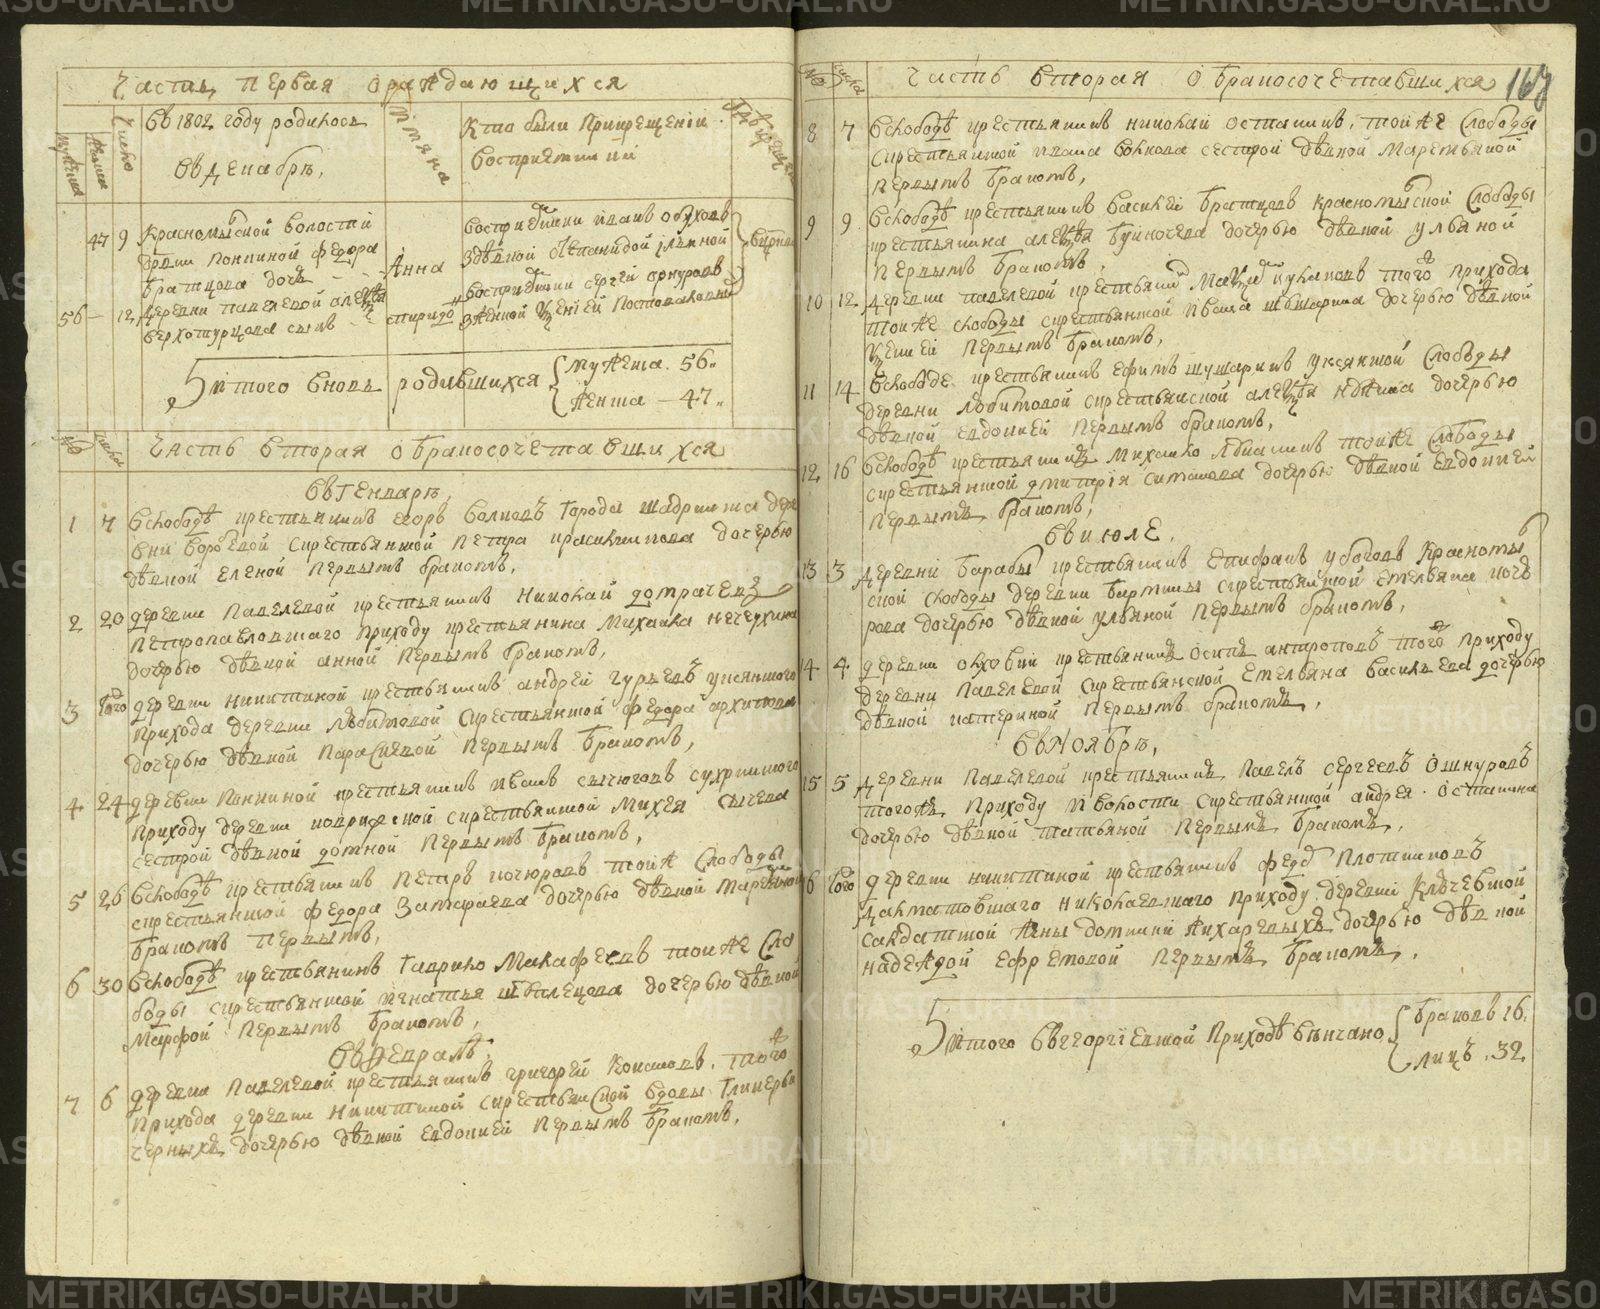 Часть первая о раждающихся
Число
Мужеска
Женска
Въ 1802 году родилось
Въ декабрѣ,
Имяна
Кто были при крещеніи
восприемники
47 9 Красномыской волости
дрвни Понкиной Федора
Братцова дочь
Анна
восприемники Иванъ Обуховъ
здѣвкой Степанидой Ильиной
56 — 12 Деревни Павелевой Алеѯѣя
Верхотурцова сынъ
Спиридонъ
восприемники Сергѣй Ошнуровъ
зженкой Ѯенией
Итого вновь родившихся
Мужеска. 56.
Женска — 47.
№ Числа Часть вторая о бракосочетавшихся
Въ генварѣ,
1 7 Вслободѣ крестьянинъ Егоръ Волковъ города Шадринска дере
вни Воробьевой скрестьянской Петра Красильникова дочерью
дѣвкой Еленой первымъ бракомъ,
2 20 деревни Павелевой крестьянинъ Николай Домрачевъ
Петропавловскаго приходу крестьянина Михаила Нечеухина
дочерью дѣвкой Анной первымъ бракомъ,
3 того деревни Никитиной крестьянинъ Андрей Гурьевъ Уксянского
прихода деревни Любимовой скрестьянской Федора Архипова
дочерью дѣвкой Параскевой первымъ бракомъ,
4. 24 деревни Понкиной крестьянинъ Иванъ Сычюговъ Сухринского
приходу деревни скрестьянской Михея Сычева
сестрой дѣвкой Домной первымъ бракомъ,
5 26 Вслободѣ крестьянинъ Петръ Кочюровъ тойже слободы
скрестьянской Федора Замараева дочерью дѣвкой Маремьяной
бракомъ первымъ,
6 30 Вслободѣ крестьянинъ Гаврило Малафеевъ тоиже сло
боды скрестьянской Игнатья дочерью дѣвкой
Марфой первымъ бракомъ,
Въ февралѣ,
7 6 деревни Павелевой крестьянинъ Григорей Кокшовъ, тогожъ
прихода деревни Никитиной скрестьянской вдовы Гликерьи
Черныхъ дочерью дѣвкой Евдокией первымъ бракомъ,
№ числа Часть вторая о бракосочетавшихся
8 7 Вслободѣ крестьянинъ Николай Останинъ, тойже слободы
скрестьянской Ивана Волкова сестрой дѣвкой Маремьяной
первымъ бракомъ,
9 9 Вслободѣ крестьянинъ Василей Братцовъ Красномыской слободы
крестьянина Алеѯѣя дочерью дѣвкой Ульяной
первымъ бракомъ,
10 12 деревни Павелевой крестьянинъ Куклиновъ тогожъ прихода
тоиже слободы скрестьянской Ивана дочерью дѣвкой
Ѯенией первымъ бракомъ,
11 14 Вслободе крестьянинъ Ефимъ Шушаринъ Уксянской слободы
деревни Любимовой скрестьянской Алеѯѣя дочерью
дѣвкой Евдокией первымъ бракомъ,
12 16 Вслободѣ крестьянинъ Михайло тоиже слободы
скрестьянской Дмитрія Ситникова дочерью дѣвкой Евдокией
первымъ бракомъ,
Въ июле,
13 3 деревни Барабы крестьянинъ Епифанъ Убоговъ Красномы
ской слободы деревни крестьянской Емельяна Кочю
рова дочерью дѣвкой Ульяной первымъ бракомъ,
14 4. деревни Ольховки крестьянинъ Осипъ Антроповъ тогожъ приходу
деревни Павелевой скрестьянской Емельяна Васильева дочерью
дѣвкой Катериной первымъ бракомъ,
Въ ноябрѣ,
15 5 деревни Павелевой крестьянинъ Павелъ Сергеевъ Ошнуровъ
тогожъ приходу и волости скрестьянской Андрея Останина
дочерью дѣвкой Татьяной первымъ бракомъ,
16 того деревни Никитиной крестьянинъ Федоръ Плотниковъ
Далматовскаго Николаевскаго приходу деревни Ключевской
салдатской жены Домники Жихаревыхъ дочерью дѣвкой
Надеждой Ефремовой первымъ бракомъ.
Итого въ Георгіевской приходѣ вѣнчано
браковъ 16.
лицъ. 32.
METRIKI.GASO-URAL.RU